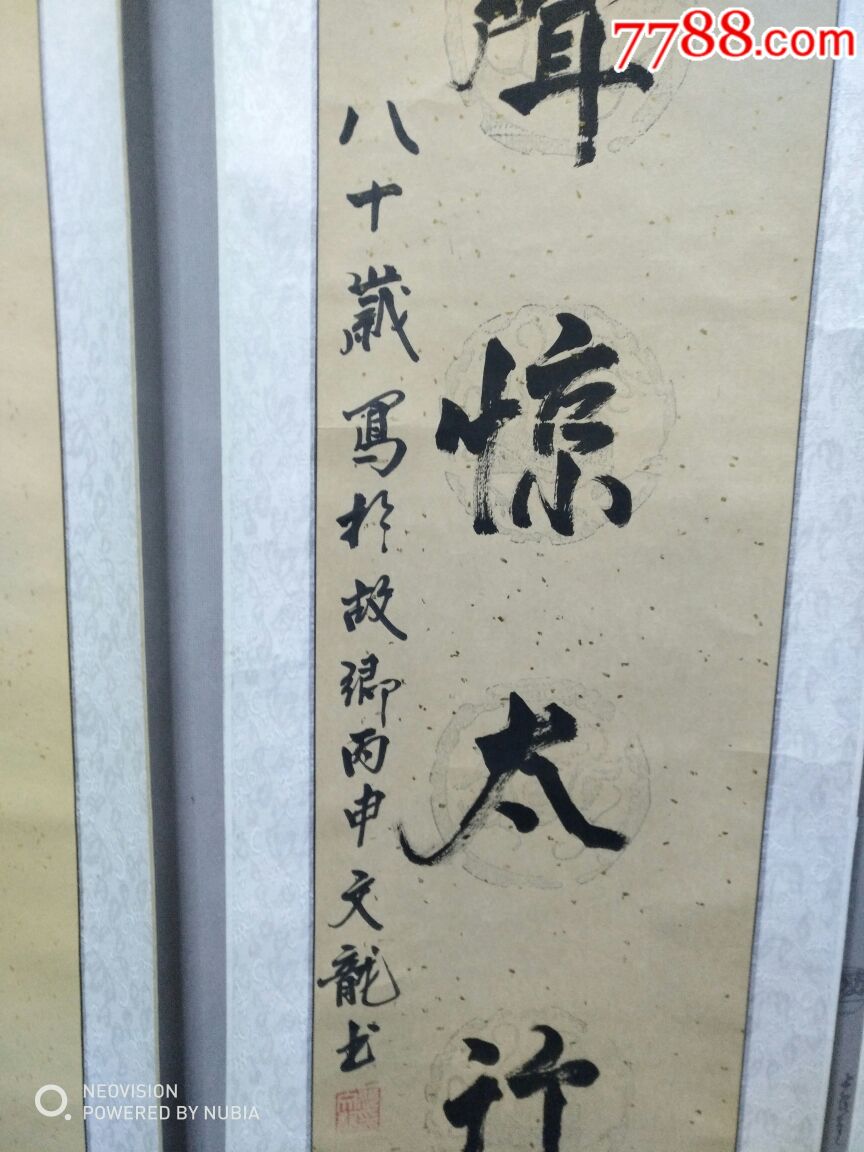 7788.com
惊太行
八十歲寫於故鄉丙申文龍书
NEOVISION
POWERED BY NUBIA